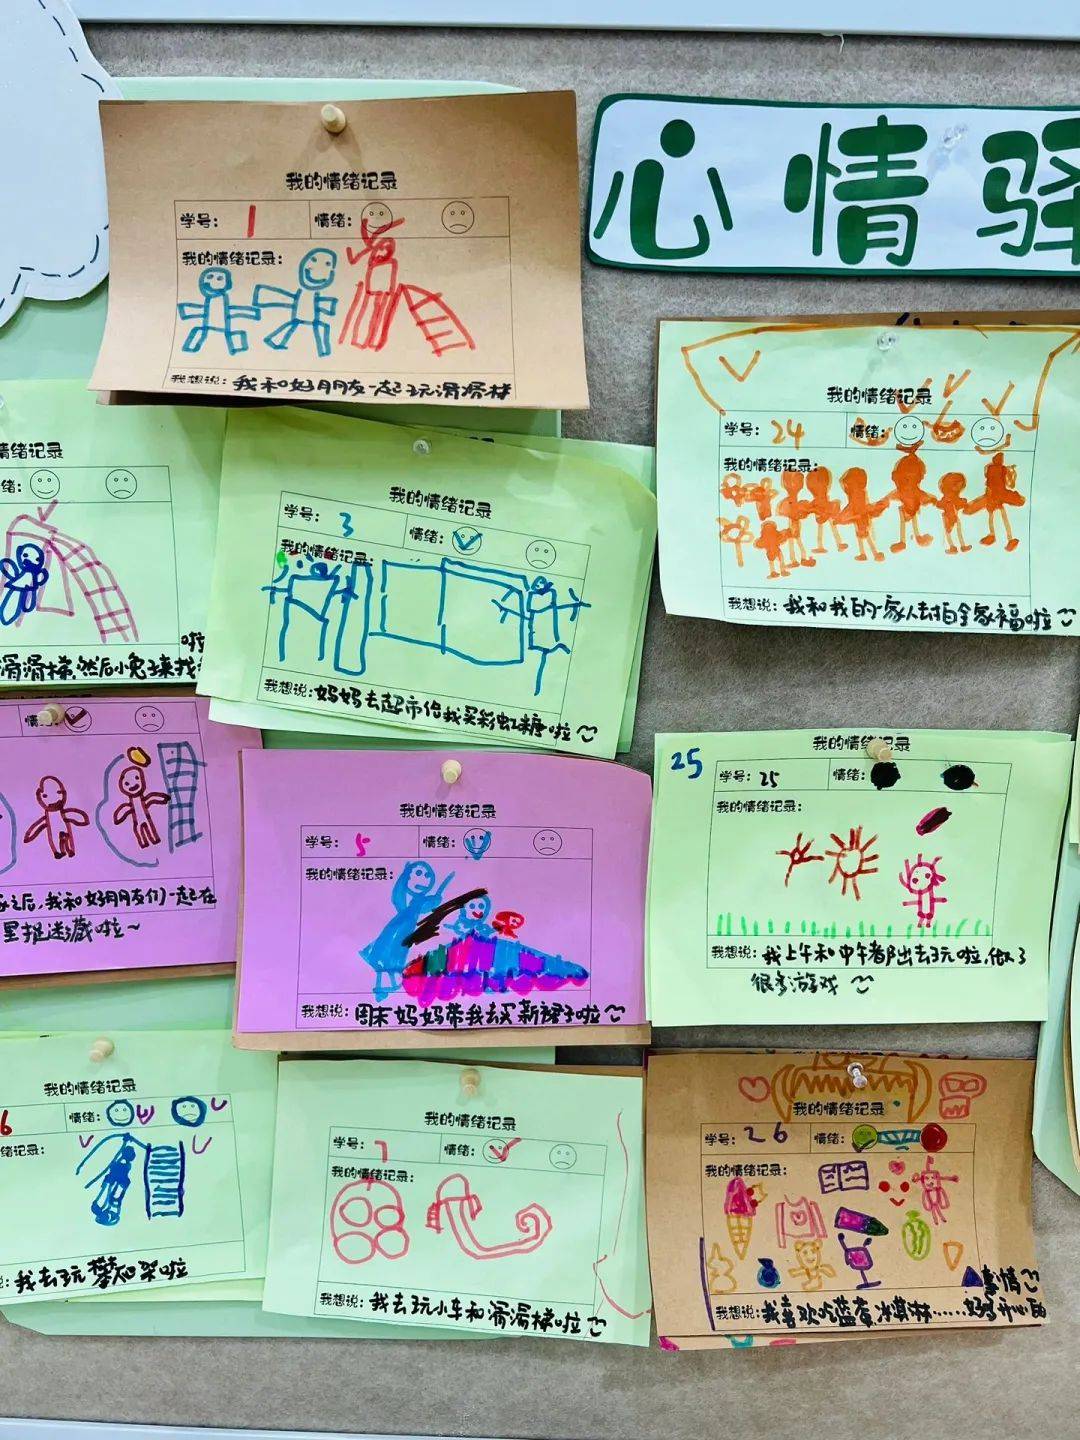 心情驿
我的情绪记录
学号： 1 情绪：
我的情绪记录：
我想说： 我和好朋友一起玩滑滑梯
情绪记录
绪：
啦
滑滑梯，然后小兔子来找
我的情绪记录
学号： 3 情绪：
我的情绪记录：
我想说： 妈妈去起市给我买彩虹糖啦
我的情绪记录
学号： 24 情绪：
我的情绪记录：
我想说： 我和我的一家人去拍全家福啦
情绪：
之后，我和好朋友们一起在
里捉迷藏啦～
我的情绪记录
学号： 5 情绪：
我的情绪记录：
我想说： 周末妈妈带我去买新裙子啦
25
我的情绪记录
学号： 25 情绪：
我的情绪记录：
我想说： 我上午和中午都出去玩啦，做了
很多游戏
我的情绪记录
6 情绪：
绪记录：
说： 我去玩攀爬架啦
我的情绪记录
学号： 7 情绪：
我的情绪记录：
我想说： 我去玩小车和滑滑梯啦
我的情绪记录
学号： 26 情绪：
我的情绪记录：
事情
我想说： 我喜欢吃蓝莓，冰淇淋……好多开心的